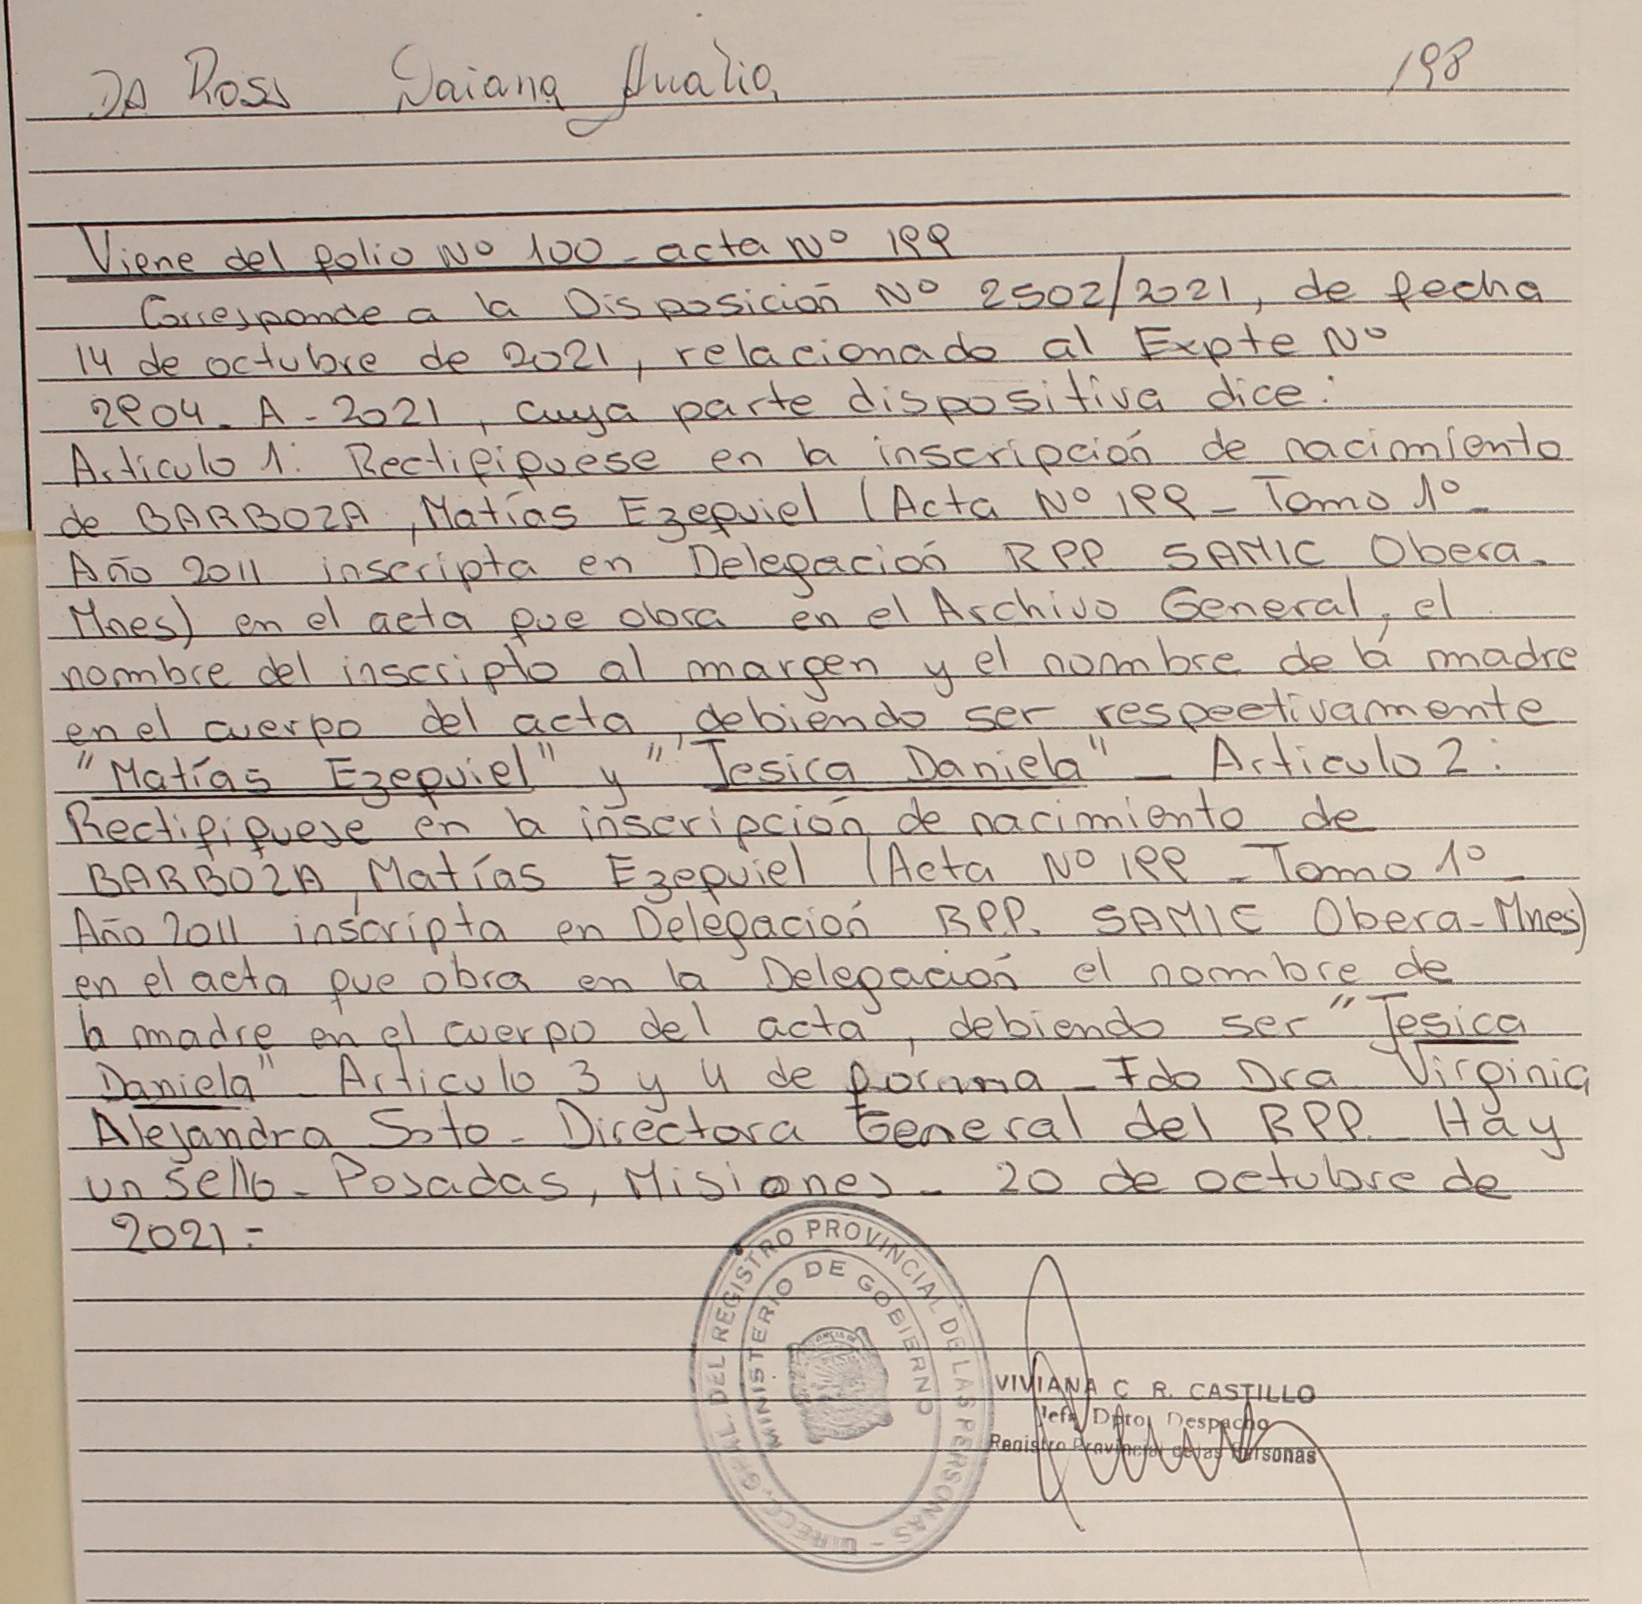 DA Rosa Daiana Analia 198
Viene del folio Nº 100 - acta Nº 199
Corresponde a la Disposición Nº 2502/2021, de fecha
14 de octubre de 2021, relacionado al Expte Nº
2904 - A - 2021, cuya parte dispositiva dice:
Articulo 1: Rectifiquese en la inscripción de nacimiento
de BARBOZA, Matías Ezequiel (Acta Nº 199 - Tomo 1º -
Año 2011 inscripta en Delegación RPP SAMIC Obera -
Mnes) en el acta que obra en el Archivo General, el
nombre del inscripto al margen y el nombre de la madre
en el cuerpo del acta, debiendo ser respectivamente
"Matías Ezequiel" y "Jesica Daniela" - Articulo 2:
Rectifiquese en la inscripción de nacimiento de
BARBOZA, Matías Ezequiel (Acta Nº 199 - Tomo 1º -
Año 2011 inscripta en Delegación RPP. SAMIC Obera - Mnes)
en el acta que obra en la Delegación el nombre de
la madre en el cuerpo del acta, debiendo ser "Jesica
Daniela" - Articulo 3 y 4 de forma - Fdo Dra Virginia
Alejandra Soto - Directora General del RPP. Hay
un sello - Posadas, Misiones - 20 de octubre de
2021 =
DIRECC. GRAL. DEL REGISTRO PROVINCIAL DE LAS PERSONAS -
MINISTERIO DE GOBIERNO
VIVIANA C. R. CASTILLO
Jefa Dpto. Despacho
Registro Provincial de las Personas